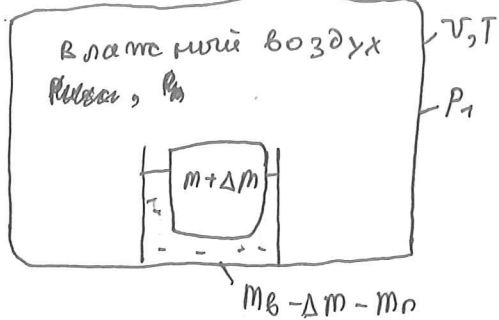 Влажный воздух
Pнас, Pп
V, T
P₁
m+Δm
mв - Δm - mп